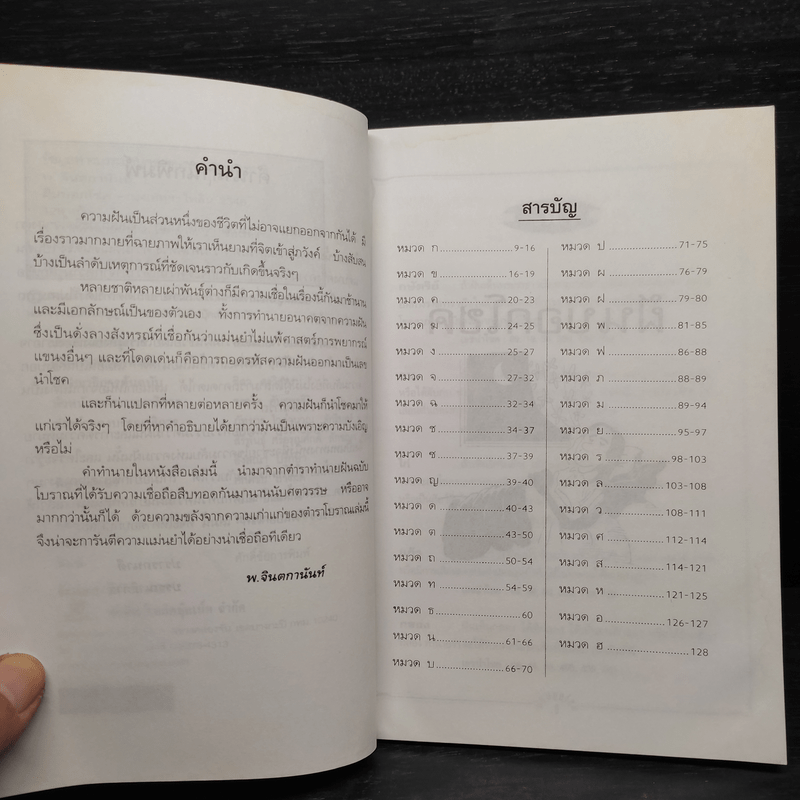 คำนำ
ความฝันเป็นส่วนหนึ่งของชีวิตที่ไม่อาจแยกออกจากกันได้ มี
เรื่องราวมากมายที่ฉายภาพให้เราเห็นยามที่จิตเข้าสู่ภวังค์ บ้างสับสน
บ้างเป็นลำดับเหตุการณ์ที่ชัดเจนราวกับเกิดขึ้นจริงๆ
หลายชาติหลายเผ่าพันธุ์ต่างก็มีความเชื่อในเรื่องนี้กันมาช้านาน
และมีเอกลักษณ์เป็นของตัวเอง ทั้งการทำนายอนาคตจากความฝัน
ซึ่งเป็นดั่งลางสังหรณ์ที่เชื่อกันว่าแม่นยำไม่แพ้ศาสตร์การพยากรณ์
แขนงอื่นๆ และที่โดดเด่นก็คือการถอดรหัสความฝันออกมาเป็นเลข
นำโชค
และก็น่าแปลกที่หลายต่อหลายครั้ง ความฝันก็นำโชคมาให้
แก่เราได้จริงๆ โดยที่หาคำอธิบายได้ยากว่ามันเป็นเพราะความบังเอิญ
หรือไม่
คำทำนายในหนังสือเล่มนี้ นำมาจากตำราทำนายฝันฉบับ
โบราณที่ได้รับความเชื่อถือสืบทอดกันมานานนับศตวรรษ หรืออาจ
มากกว่านั้นก็ได้ ด้วยความขลังจากความเก่าแก่ของตำราโบราณเล่มนี้
จึงน่าจะการันตีความแม่นยำได้อย่างน่าเชื่อถือทีเดียว
พ.จินตกานันท์
สารบัญ
หมวด ก....................9-16
หมวด ข....................16-19
หมวด ค....................20-23
หมวด ฆ....................24-25
หมวด ง....................25-27
หมวด จ....................27-32
หมวด ฉ....................32-34
หมวด ช....................34-37
หมวด ซ....................37-39
หมวด ญ....................39-40
หมวด ด....................40-43
หมวด ต....................43-50
หมวด ถ....................50-54
หมวด ท....................54-59
หมวด ธ....................60
หมวด น....................61-66
หมวด บ....................66-70
หมวด ป....................71-75
หมวด ผ....................76-79
หมวด ฝ....................79-80
หมวด พ....................81-85
หมวด ฟ....................86-88
หมวด ภ....................88-89
หมวด ม....................89-94
หมวด ย....................95-97
หมวด ร....................98-103
หมวด ล....................103-108
หมวด ว....................108-111
หมวด ศ....................112-114
หมวด ส....................114-121
หมวด ห....................121-125
หมวด อ....................126-127
หมวด ฮ....................128